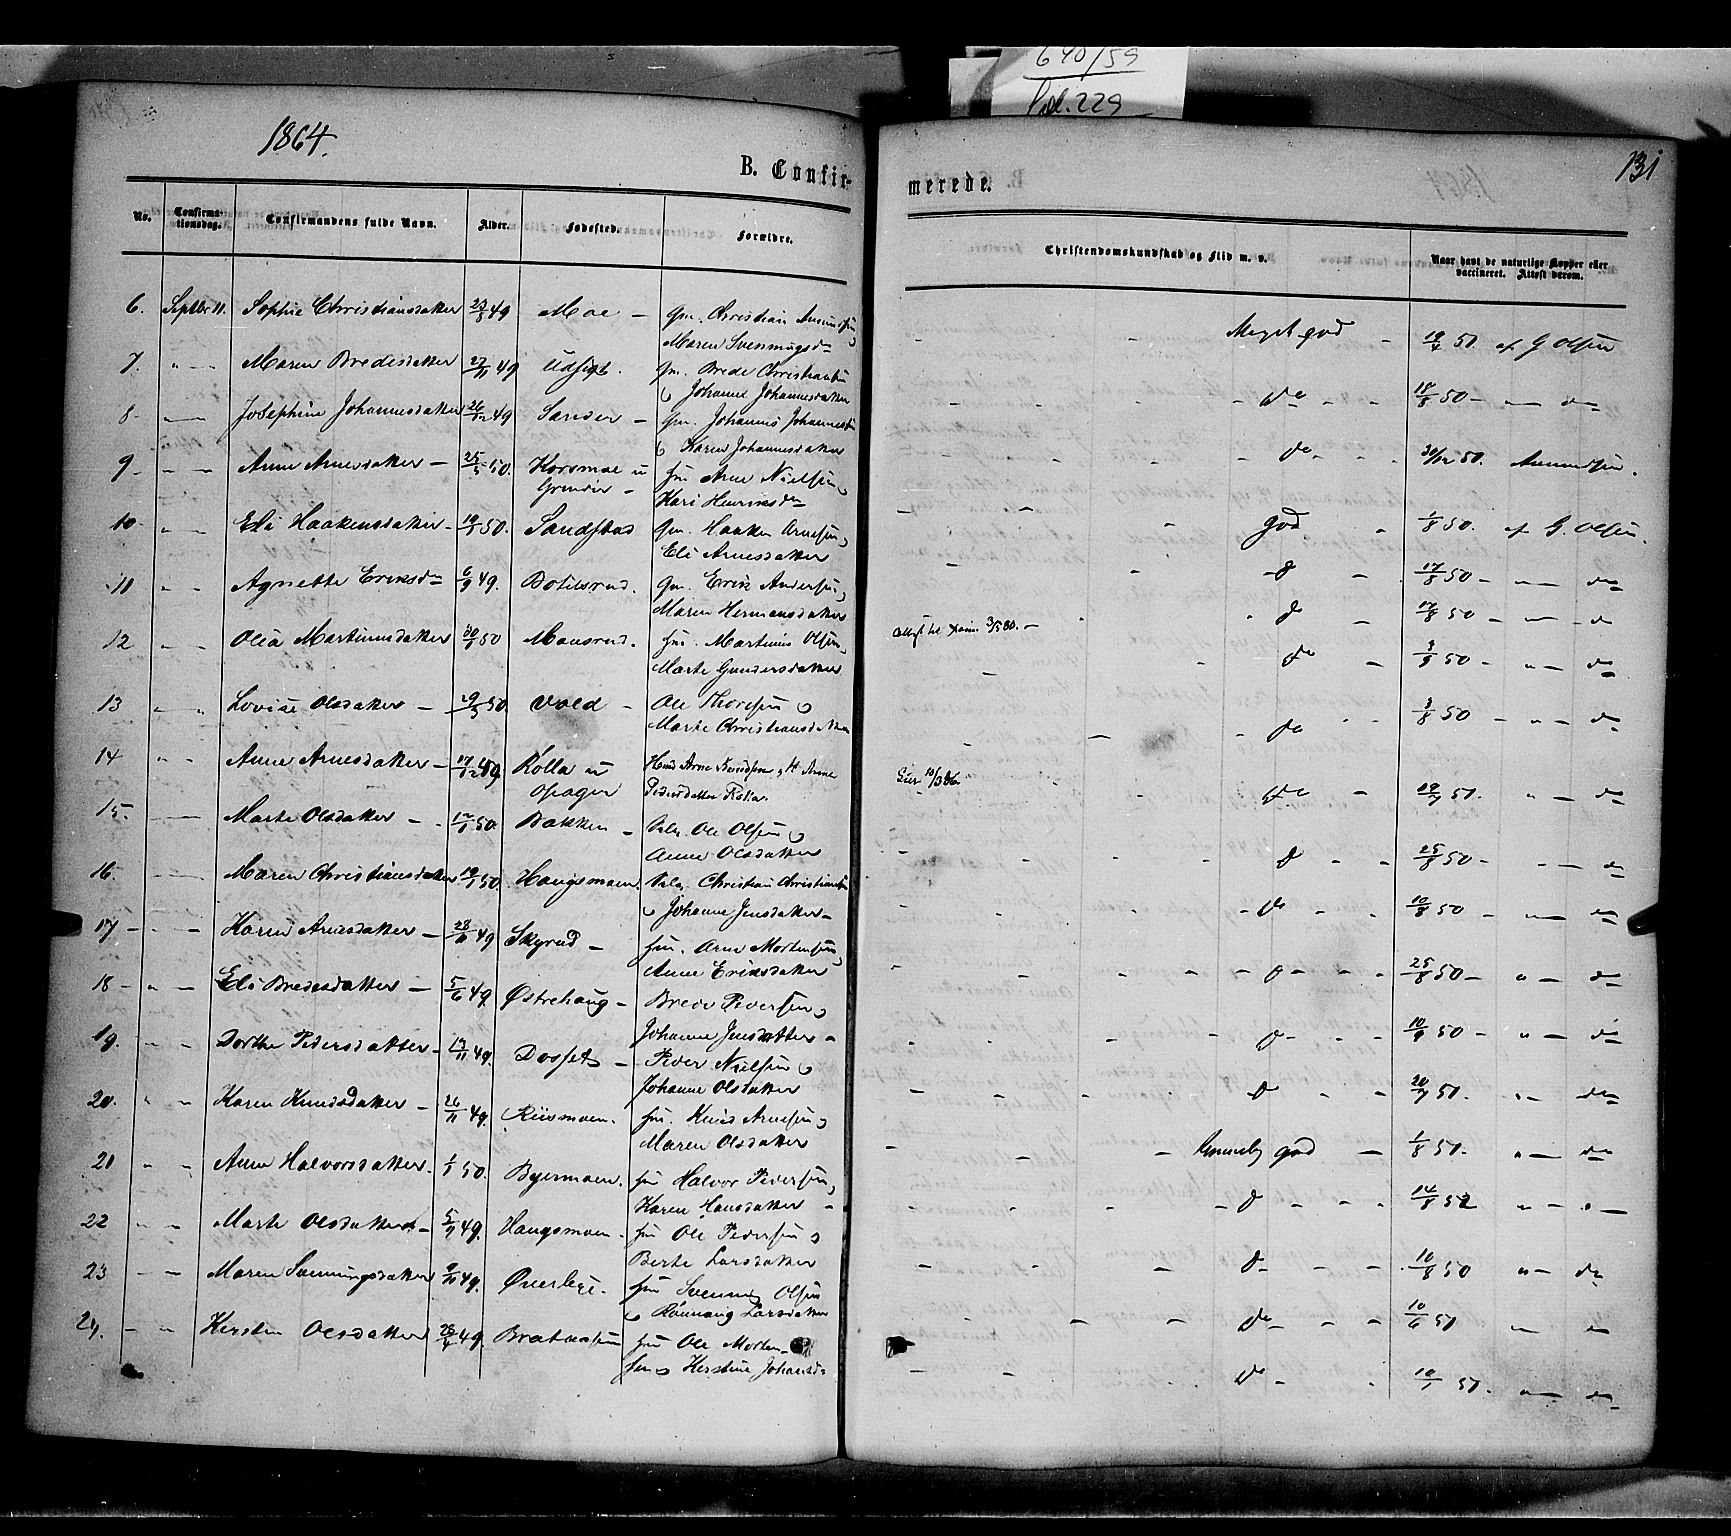 640/59
Pd. 229
1864.
131
B. Confir-
merede.
No.
Confirma-
tionsdag.
Confirmandens fulde Navn.
Alder.
Fødested.
Forældre.
Christendomskundskab og Flid m. v.
Naar havt de naturlige Kopper eller
vaccineret. Attest derom.
6. Septbr 11. Sophie Christiansdatter 23/8 49 Moe – Gm. Christian
Maren Svenningsd. Meget god 19/4 51. af G Olsen
7. " – " Maren Bredesdatter 27/11 49 Udsigt. Gm. Brede Christiansen
& Johanne Johannesdatter do 18/8 50 – " – do
8 – Josephine Johannesdatter 26/12 49 Sander – Gm. Johannes Johannesen
& Karen Johannesdatter do 30/12 50. Amundsen.
9 – – Anne Arnesdatter – 25/5 50. Korsmoe u
Grinder – Hm Arne Nielsen &
Kari Henriksdr god 1/8 50. af G. Olsen.
10 " – Eli Haakensdatter – 19/1 50. Sandstad Gm. Haaken Arnesen &
Eli Arnesdatter d 17/8 50 – " – do
11 " – Agnethe Eriksdr 6/9 49. Botilsrud. Gm. Erik Andersen &
Maren Hermansdatter do 17/8 50 – " – do
12 " – Olea Martinusdatter 30/1 50 Monsrud. Hm. Martinus Olsen &
Marte Gundersdatter 3/5 80. – do 3/9 50 – " – do
13 " " Lovise Olsdatter – 29/3 50 Vold – Ole Thoresen &
Marte Christiansdatter do 3/8 50 – " – do
14 " – Anne Arnesdatter – 17/12 49 Kolla u
Opager Arne & H. Anne
Pedersdatter 10/3 86 do 19/7 51. " – do
15. – Marte Olsdatter – 17/1 50. Bakken – Selv. Ole Olsen &
Anne Olsdatter d 25/8 50 – – do
16. – Maren Christiansdatter 19/1 50. Haugsmoen. Selv. Christian Christiansen
& Johanne Jensdatter – do 10/8 50 – – do
17 – – – Karen Arnesdatter – 28/11 49 Skyrud – Hm. Arne Mortensen &
Anne Eriksdatter d 25/8 50 – " – do
18 – " – Eli Bredesdatter – 5/6 49. Østrehaug – Brede Pedersen &
Johanne Jensdatter – d 10/9 50 – " – d
19. " – Dorthe Pedersdatter – 17/11 49. Dosset – Peder Nielsen &
Johanne Olsdatter d 20/7 51. " – do
20. " " Karen Knudsdatter – 26/11 49. Riismoen. Hm. Knud Arnesen &
Maren Olsdatter god – 1/8 51. " – do
21 " " Anne Halvorsdatter. 1/1 50. Byermoen. Hm Halvor Pedersen &
Karen Hansdatter – d 14/8 52 " –
22 " – Marte Olsdatter – 5/9 49. Haugsmoen. Hm Ole Pedersen &
Berte Larsdatter d – 10/8 50 " – do
23 – – Maren Svenningsdatter 9/11 49. Øverbye. Hm Svenning Olsen
& Rønnaug Larsdatter do 10/6 51 – d
24. – " Kersten Olsdatter 28/4 49. Hm Ole Morten-
sen & Kerstine Johansd. do – 10/1 51. " – do